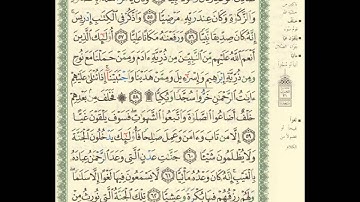 وَالزَّكَوٰةِ وَكَانَ عِندَ رَبِّهِۦ مَرْضِيًّا ۝٥٥ وَاذْكُرْ فِي الْكِتَٰبِ إِدْرِيسَ
إِنَّهُۥ كَانَ صِدِّيقًا نَّبِيًّا ۝٥٦ وَرَفَعْنَٰهُ مَكَانًا عَلِيًّا ۝٥٧ أُو۟لَٰٓئِكَ الَّذِينَ
أَنْعَمَ اللَّهُ عَلَيْهِم مِّنَ النَّبِيِّـۧنَ مِن ذُرِّيَّةِ ءَادَمَ وَمِمَّنْ حَمَلْنَا مَعَ نُوحٍ
وَمِن ذُرِّيَّةِ إِبْرَٰهِيمَ وَإِسْرَٰٓءِيلَ وَمِمَّنْ هَدَيْنَا وَاجْتَبَيْنَآ إِذَا تُتْلَىٰ عَلَيْهِمْ
ءَايَٰتُ الرَّحْمَٰنِ خَرُّوا۟ سُجَّدًا وَبُكِيًّا ۩ ۝٥٨ فَخَلَفَ مِنۢ بَعْدِهِمْ
خَلْفٌ أَضَاعُوا۟ الصَّلَوٰةَ وَاتَّبَعُوا۟ الشَّهَوَٰتِ فَسَوْفَ يَلْقَوْنَ غَيًّا ۝٥٩
إِلَّا مَن تَابَ وَءَامَنَ وَعَمِلَ صَٰلِحًا فَأُو۟لَٰٓئِكَ يَدْخُلُونَ الْجَنَّةَ
وَلَا يُظْلَمُونَ شَيْـًٔا ۝٦٠ جَنَّٰتِ عَدْنٍ الَّتِي وَعَدَ الرَّحْمَٰنُ عِبَادَهُۥ
بِالْغَيْبِ إِنَّهُۥ كَانَ وَعْدُهُۥ مَأْتِيًّا ۝٦١ لَّا يَسْمَعُونَ فِيهَا لَغْوًا إِلَّا سَلَٰمًا
وَلَهُمْ رِزْقُهُمْ فِيهَا بُكْرَةً وَعَشِيًّا ۝٦٢ تِلْكَ الْجَنَّةُ الَّتِي نُورِثُ مِنْ